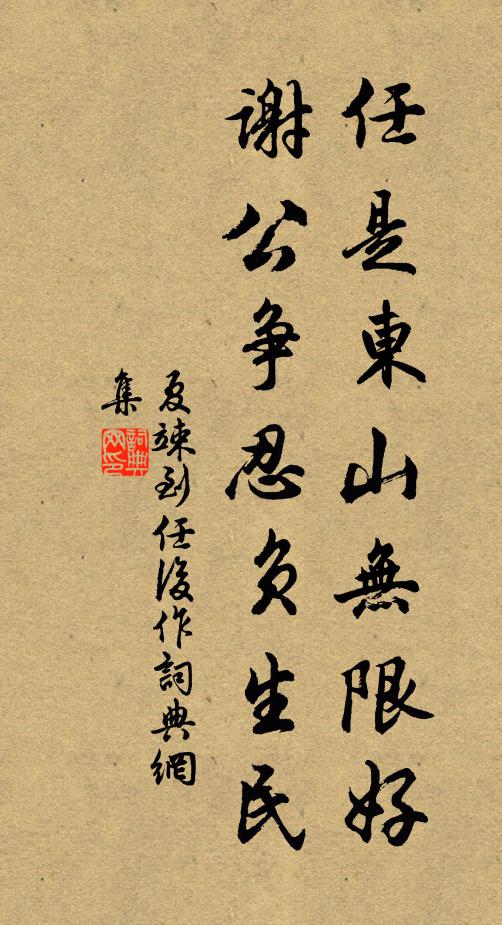 任是東山無限好
謝公争忍負生民
夏竦到任後作詞典網
集
詞典
网印